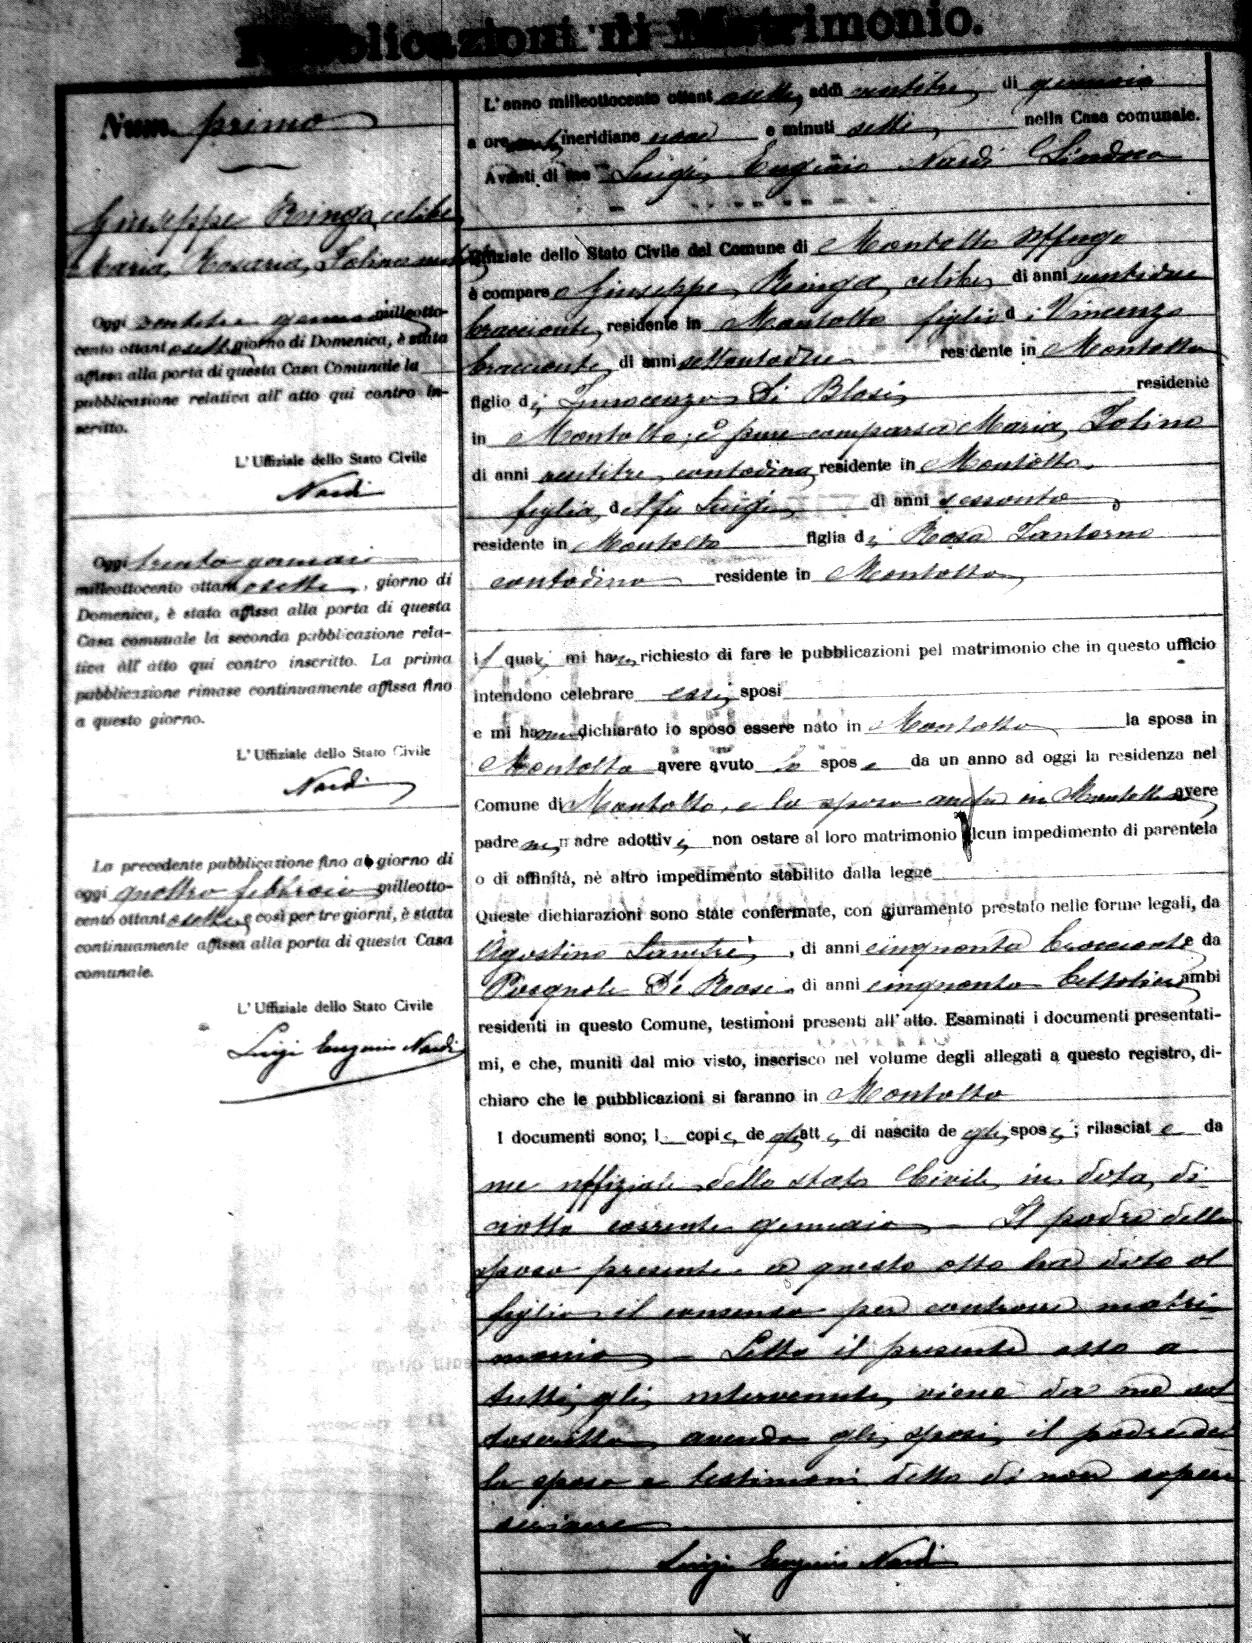 Pubblicazioni di Matrimonio.
Num. primo
Giuseppe Ringa, celibe
Maria, Rosaria, Iolina nubile
Oggi ventitre gennaio milleotto-
cento ottantasette, giorno di Domenica, è stata
affissa alla porta di questa Casa Comunale la
pubblicazione relativa all' atto qui contro in-
scritto.
L' Uffiziale dello Stato Civile
Nardi
Oggi trenta gennaio
milleottocento ottantasette, giorno di
Domenica, è stata affissa alla porta di questa
Casa comunale la seconda pubblicazione rela-
tiva all' atto qui contro inscritto. La prima
pubblicazione rimase continuamente affissa fino
a questo giorno.
L' Uffiziale dello Stato Civile
Nardi
La precedente pubblicazione fino al giorno di
oggi quattro febbraio milleotto-
cento ottantasette e così per tre giorni, è stata
continuamente affissa alla porta di questa Casa
comunale.
L' Uffiziale dello Stato Civile
Luigi Eugenio Nardi
L'anno milleottocento ottantasette, addì ventitre, di gennaio
a ore antimeridiane nove e minuti sette, nella Casa comunale.
Avanti di me Luigi Eugenio Nardi Sindaco
Uffiziale dello Stato Civile del Comune di Montalto Uffugo
è comparso Giuseppe Ringa, celibe, di anni ventidue
bracciante, residente in Montalto figlio di Vincenzo
bracciante, di anni settantadue residente in Montalto
figlio di Innocenza Di Blasi, residente
in Montalto; è pure comparsa Maria, Iolina
di anni ventitre, contadina, residente in Montalto,
figlia del fu Luigi, di anni sessanta,
residente in Montalto figlia di Rosa Santorno
contadina residente in Montalto,
i quali mi hanno richiesto di fare le pubblicazioni pel matrimonio che in questo ufficio
intendono celebrare essi sposi
e mi hanno dichiarato lo sposo essere nato in Montalto la sposa in
Montalto avere avuto lo sposo da un anno ad oggi la residenza nel
Comune di Montalto, e la sposa anche in Montalto avere
padre nè madre adottivi, non ostare al loro matrimonio alcun impedimento di parentela
o di affinità, nè altro impedimento stabilito dalla legge
Queste dichiarazioni sono state confermate, con giuramento prestato nelle forme legali, da
Agostino, di anni cinquanta bracciante e da
De Rose, di anni cinquanta ambi
residenti in questo Comune, testimoni presenti all' atto. Esaminati i documenti presentati-
mi, e che, muniti dal mio visto, inserisco nel volume degli allegati a questo registro, di-
chiaro che le pubblicazioni si faranno in Montalto
I documenti sono; l copie, de gli atti, di nascita de gli sposi; rilasciate da
me uffiziale dello stato Civile in data di-
ciotto corrente gennaio - Il padre dello
sposo presente a questo atto ha dato al
figlio il consenso per contrarre matri-
monio - Letto il presente atto a
tutti gli intervenuti, viene da me sot-
toscritto, avendo gli sposi, il padre del-
lo sposo e testimoni detto di non sapere
scrivere
Luigi Eugenio Nardi